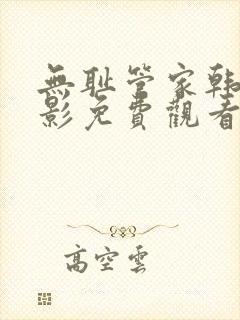 無耻管家韩
影免費觀看
高空雲